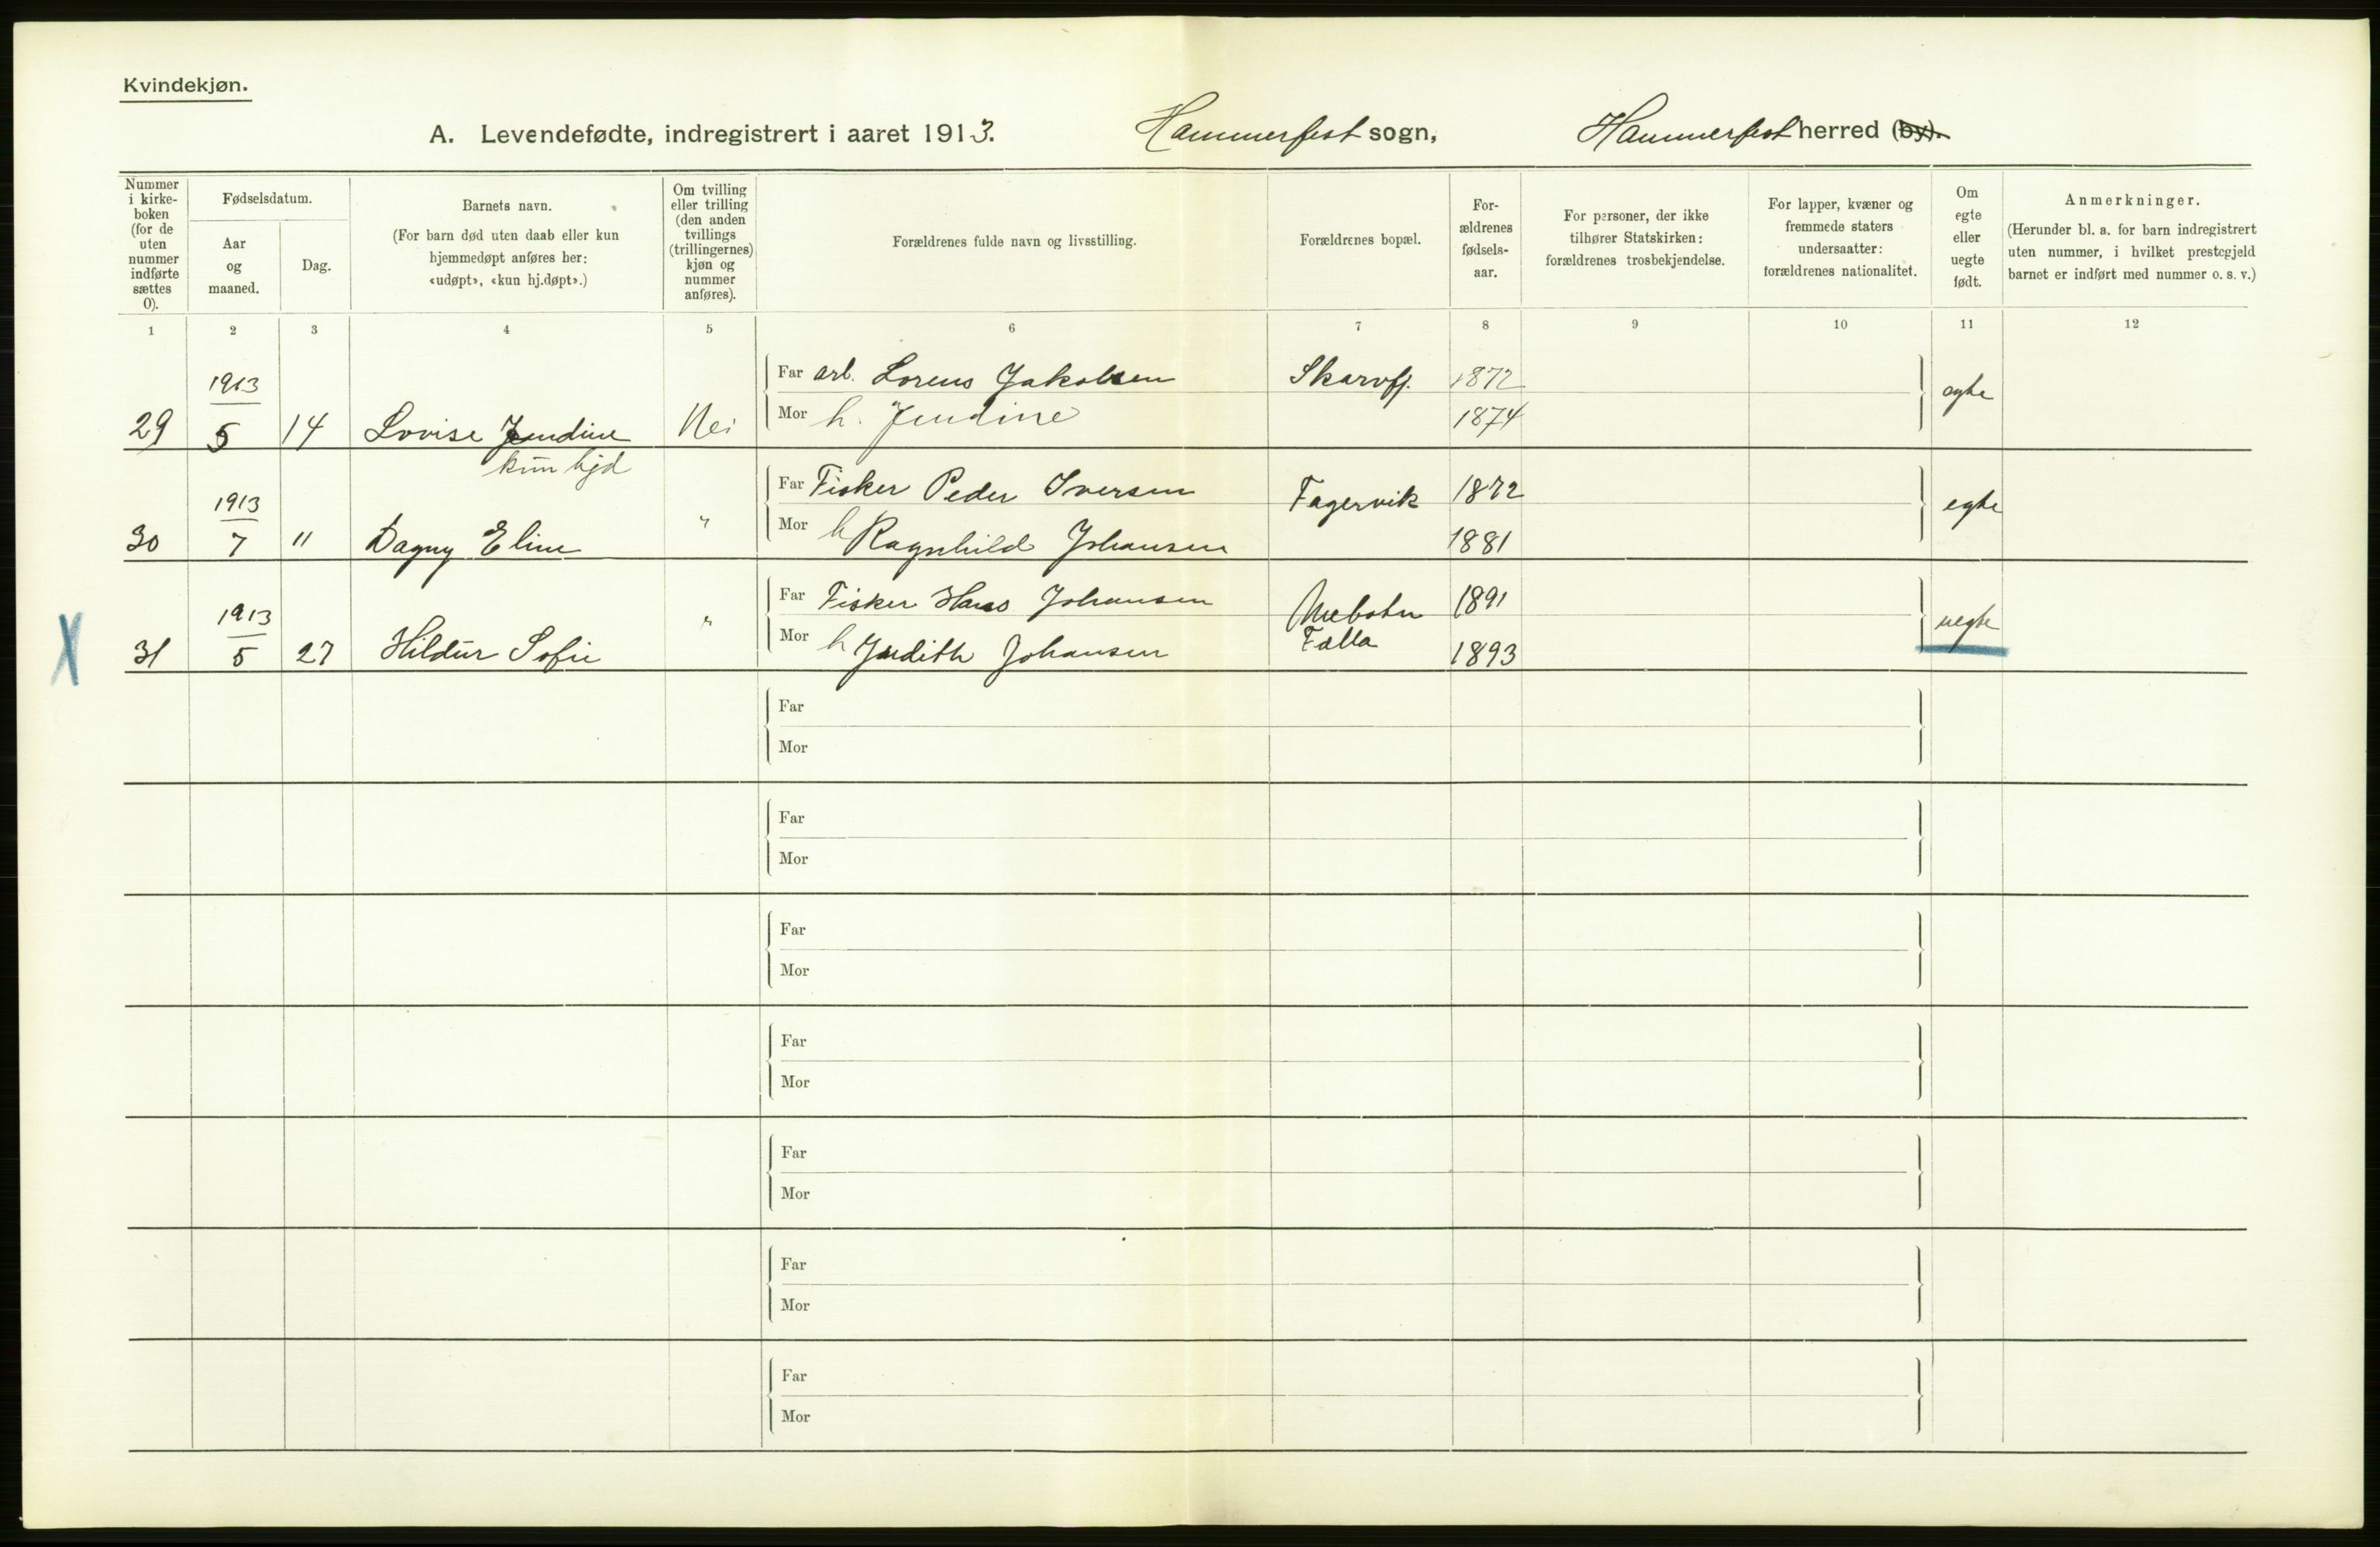 Kvindekjøn.
A. Levendefødte, indregistrert i aaret 1913. Hammerfest sogn, Hammerfest herred (by).
Nummer i kirke-boken (for de uten nummer indførte sættes 0).
Fødselsdatum.
Aar og maaned.
Dag.
Barnets navn.
(For barn død uten daab eller kun hjemmedøpt anføres her: «udøpt», «kun hj.døpt».)
Om tvilling eller trilling (den anden tvillings (trillingernes) kjøn og nummer anføres).
Forældrenes fulde navn og livsstilling.
Forældrenes bopæl.
For-ældrenes fødsels-aar.
For personer, der ikke tilhører Statskirken: forældrenes trosbekjendelse.
For lapper, kvæner og fremmede staters undersaatter: forældrenes nationalitet.
Om egte eller uegte født.
Anmerkninger.
(Herunder bl. a. for barn indregistrert uten nummer, i hvilket prestegjeld barnet er indført med nummer o. s. v.)
1 2 3 4 5 6 7 8 9 10 11 12
1913 Far arb. Lorens Jakobsen Skarvfj. 1872 egte
29 5 14 Lovise Jendine Nei Mor h. Jendine 1874
kun hjd
1913 Far Fisker Peder Iversen Fagervik 1872 egte
30 7 11 Dagny Eline " Mor h Ragnhild Johansen 1881
1913 Far Fisker Hans Johansen 1891 uegte
X 31 5 27 Hildur Sofie " Mor h Judith Johansen Falla 1893
Far
Mor
Far
Mor
Far
Mor
Far
Mor
Far
Mor
Far
Mor
Far
Mor